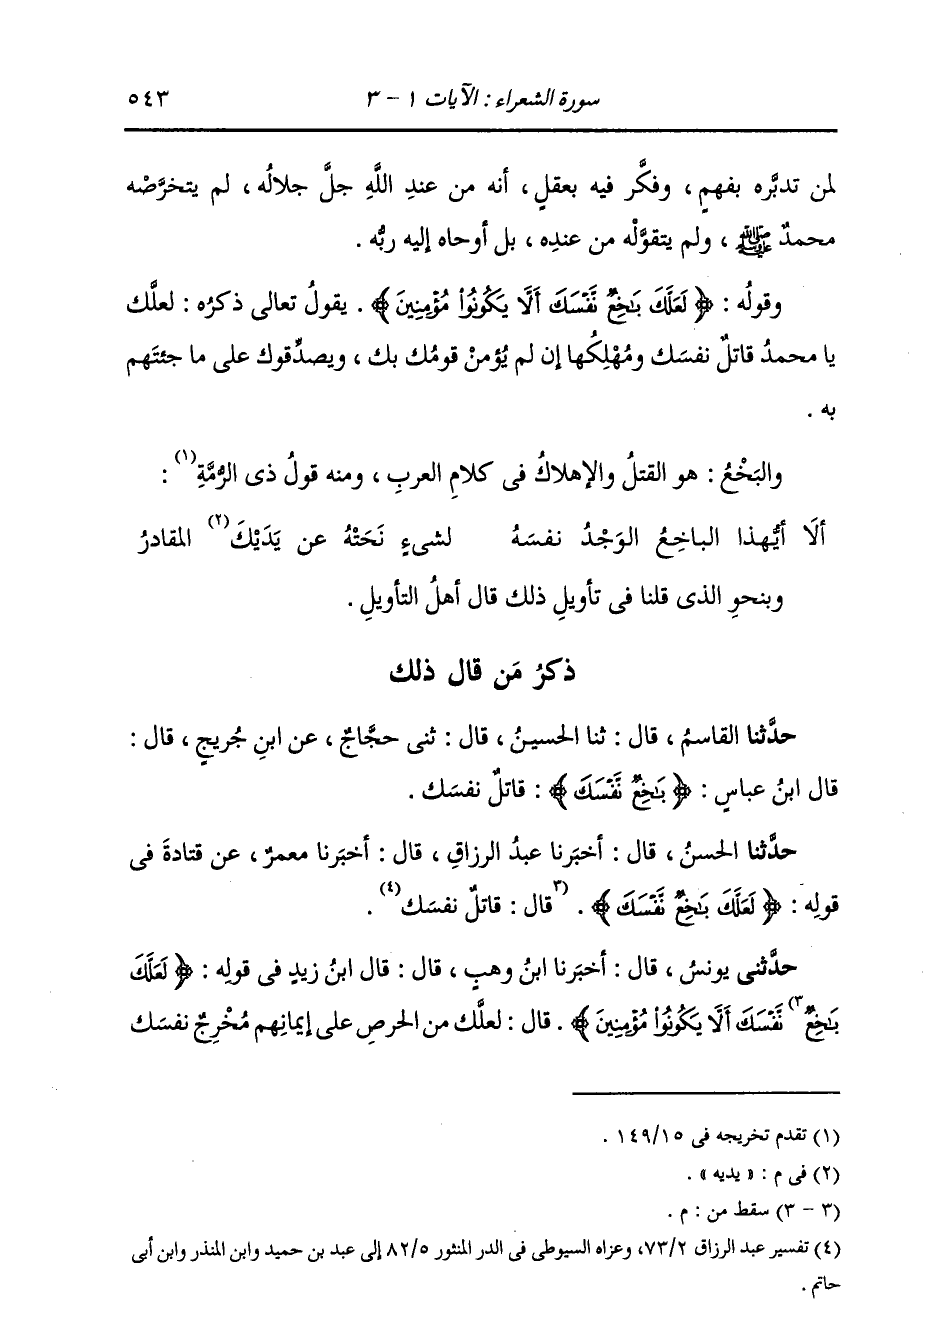 سورة الشعراء : الآيات ١ - ٣ ٥٤٣
لمن تدبَّره بفهمٍ ، وفكَّر فيه بعقلٍ ، أنه من عندِ اللَّهِ جلَّ جلالُه ، لم يتخرَّصْه
محمدٌ ﷺ ، ولم يتقوَّلْه من عندِه ، بل أوحاه إليه ربُّه .
وقولُه : ﴿ لَعَلَّكَ بَٰخِعٌ نَّفْسَكَ أَلَّا يَكُونُوا۟ مُؤْمِنِينَ ﴾ . يقولُ تعالى ذكرُه : لعلَّك
يا محمدُ قاتلٌ نفسَك ومُهْلِكُها إن لم يُؤمنْ قومُك بك ، ويصدِّقوك على ما جئتَهم
به .
والبَخْعُ : هو القتلُ والإهلاكُ فى كلامِ العربِ ، ومنه قولُ ذى الرُّمَّةِ(١) :
ألَا أيُّهذا الباخِعُ الوَجْدُ نفسَهُ لشىءٍ نَحَتْهُ عن يَدَيْكَ(٢) المقادرُ
وبنحوِ الذى قلنا فى تأويلِ ذلك قال أهلُ التأويلِ .
ذكرُ مَن قال ذلك
حدَّثنا القاسمُ ، قال : ثنا الحسينُ ، قال : ثنى حجَّاجٌ ، عن ابنِ جُريجٍ ، قال :
قال ابنُ عباسٍ : ﴿ بَٰخِعٌ نَّفْسَكَ ﴾ : قاتلٌ نفسَك .
حدَّثنا الحسنُ ، قال : أخبَرنا عبدُ الرزاقِ ، قال : أخبَرنا معمرٌ ، عن قتادةَ فى
قولِه : ﴿ لَعَلَّكَ بَٰخِعٌ نَّفْسَكَ ﴾ . (٣قال : قاتلٌ نفسَك(٤) .
حدَّثنى يونسُ ، قال : أخبَرنا ابنُ وهبٍ ، قال : قال ابنُ زيدٍ فى قولِه : ﴿ لَعَلَّكَ
بَٰخِعٌ٣) نَّفْسَكَ أَلَّا يَكُونُوا۟ مُؤْمِنِينَ ﴾ . قال : لعلَّك من الحرصِ على إيمانِهم مُخْرِجٌ نفسَك
(١) تقدم تخريجه فى ١٤٩/١٥ .
(٢) فى م : « يديه » .
(٣ - ٣) سقط من : م .
(٤) تفسير عبد الرزاق ٧٣/٢، وعزاه السيوطى فى الدر المنثور ٨٢/٥ إلى عبد بن حميد وابن المنذر وابن أبى
حاتم .